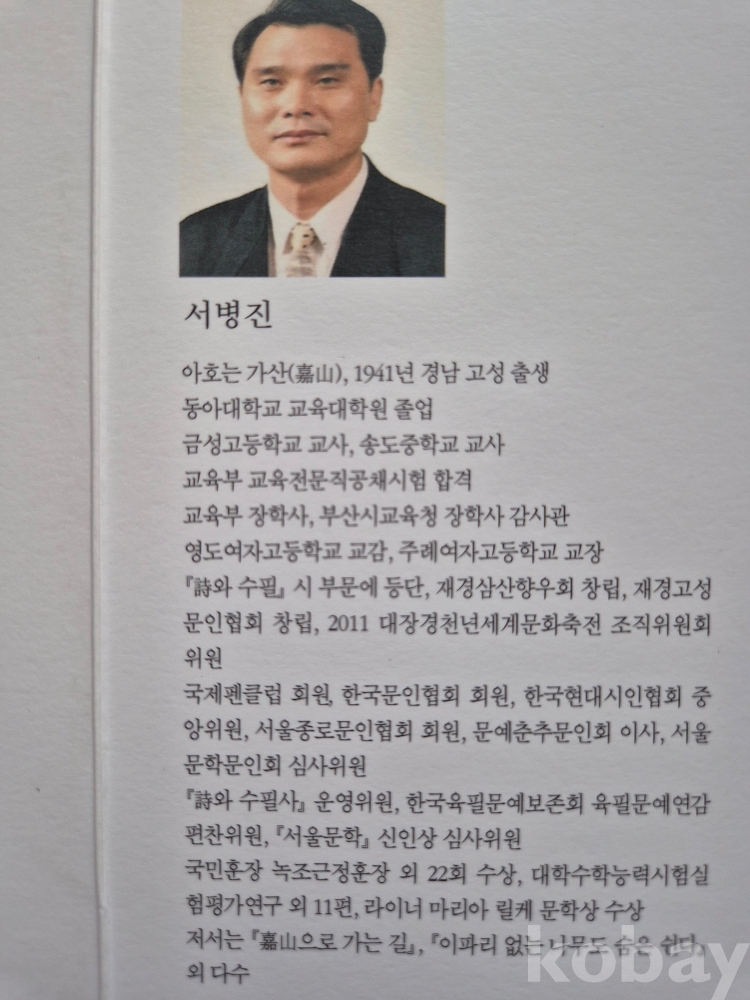 서병진
아호는 가산(嘉山), 1941년 경남 고성 출생
동아대학교 교육대학원 졸업
금성고등학교 교사, 송도중학교 교사
교육부 교육전문직공채시험 합격
교육부 장학사, 부산시교육청 장학사 감사관
영도여자고등학교 교감, 주례여자고등학교 교장
『詩와 수필』 시 부문에 등단, 재경삼산향우회 창립, 재경고성
문인협회 창립, 2011 대장경천년세계문화축전 조직위원회
위원
국제펜클럽 회원, 한국문인협회 회원, 한국현대시인협회 중
앙위원, 서울종로문인협회 회원, 문예춘추문인회 이사, 서울
문학문인회 심사위원
『詩와 수필사』 운영위원, 한국육필문예보존회 육필문예연감
편찬위원, 『서울문학』 신인상 심사위원
국민훈장 녹조근정훈장 외 22회 수상, 대학수학능력시험실
험평가연구 외 11편, 라이너 마리아 릴케 문학상 수상
저서는 『嘉山으로 가는 길』, 『이파리 없는 나무도 숨은 쉰다』
외 다수
kobay